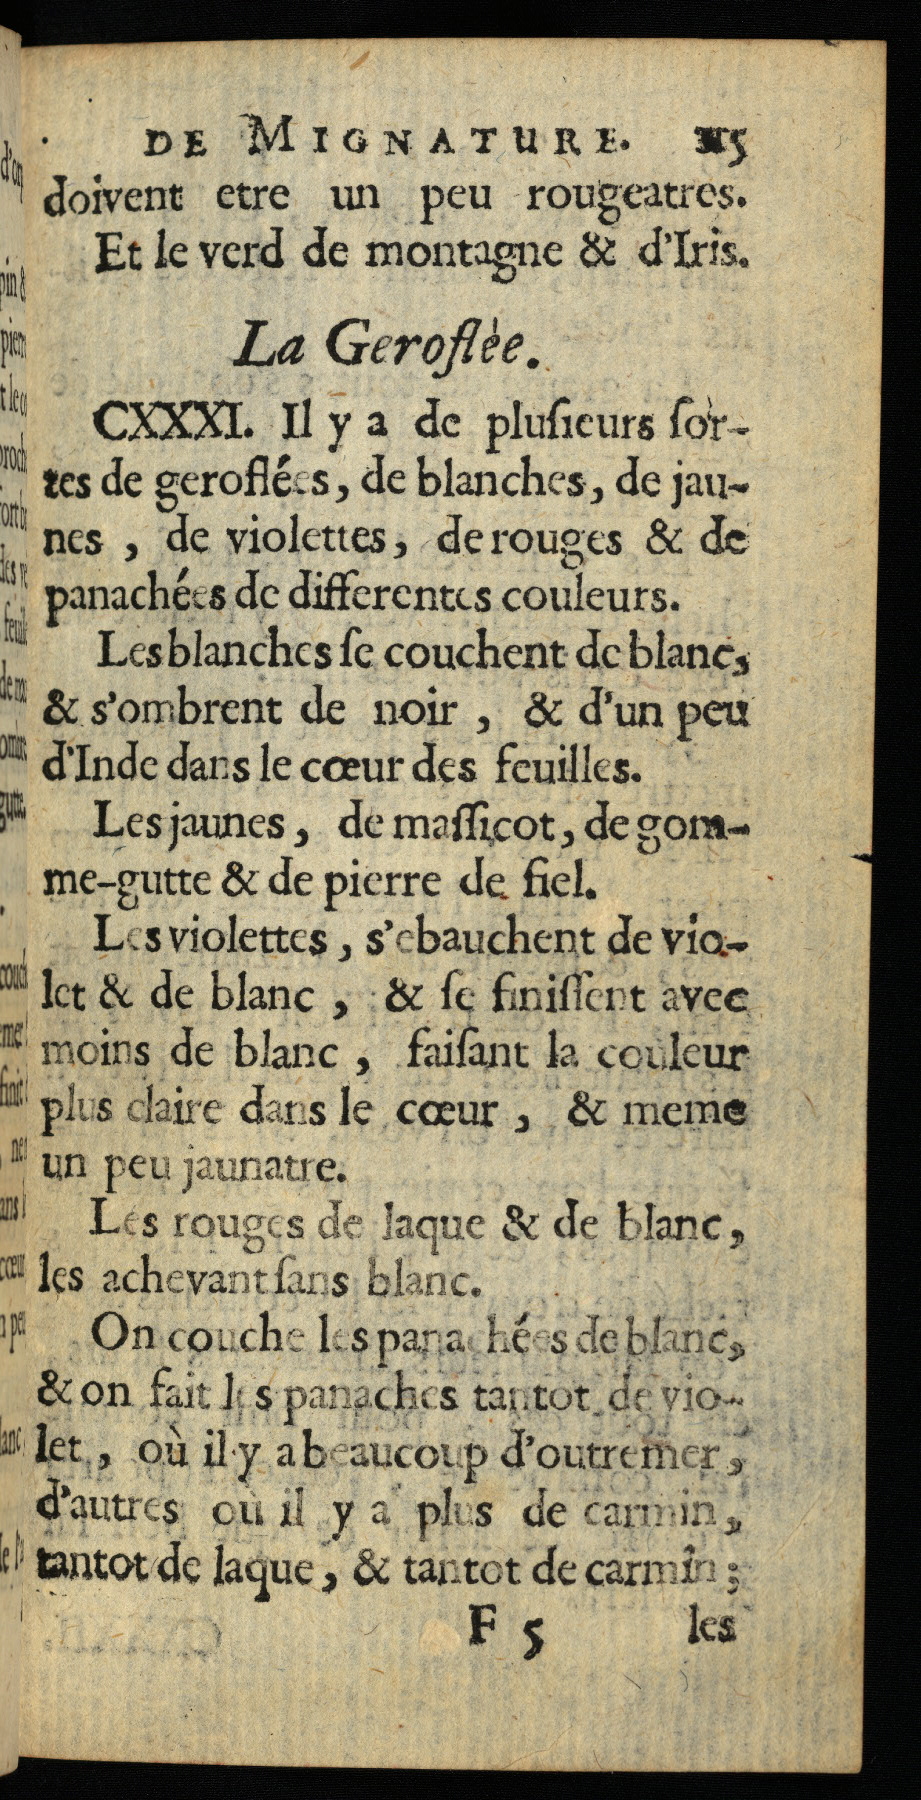 DE MIGNATURE. 115
doivent etre un peu rougeatres.
Et le verd de montagne & d'Iris.
La Geroflèe.
CXXXI. Il y a de pluſieurs ſor-
tes de geroflées, de blanches, de jau-
nes , de violettes, de rouges & de
panachées de differentes couleurs.
Les blanches ſe couchent de blanc,
& s'ombrent de noir , & d'un peu
d'Inde dans le cœur des feuilles.
Les jaunes, de maſſicot, de gom-
me-gutte & de pierre de fiel.
Les violettes, s'ebauchent de vio-
let & de blanc , & ſe finiſſent avec
moins de blanc , faiſant la couleur
plus claire dans le cœur , & meme
un peu jaunatre.
Les rouges de laque & de blanc,
les achevant ſans blanc.
On couche les panachées de blanc,
& on fait les panaches tantot de vio-
let, où il y a beaucoup d'outremer,
d'autres où il y a plus de carmin,
tantot de laque, & tantot de carmin;
F 5 les